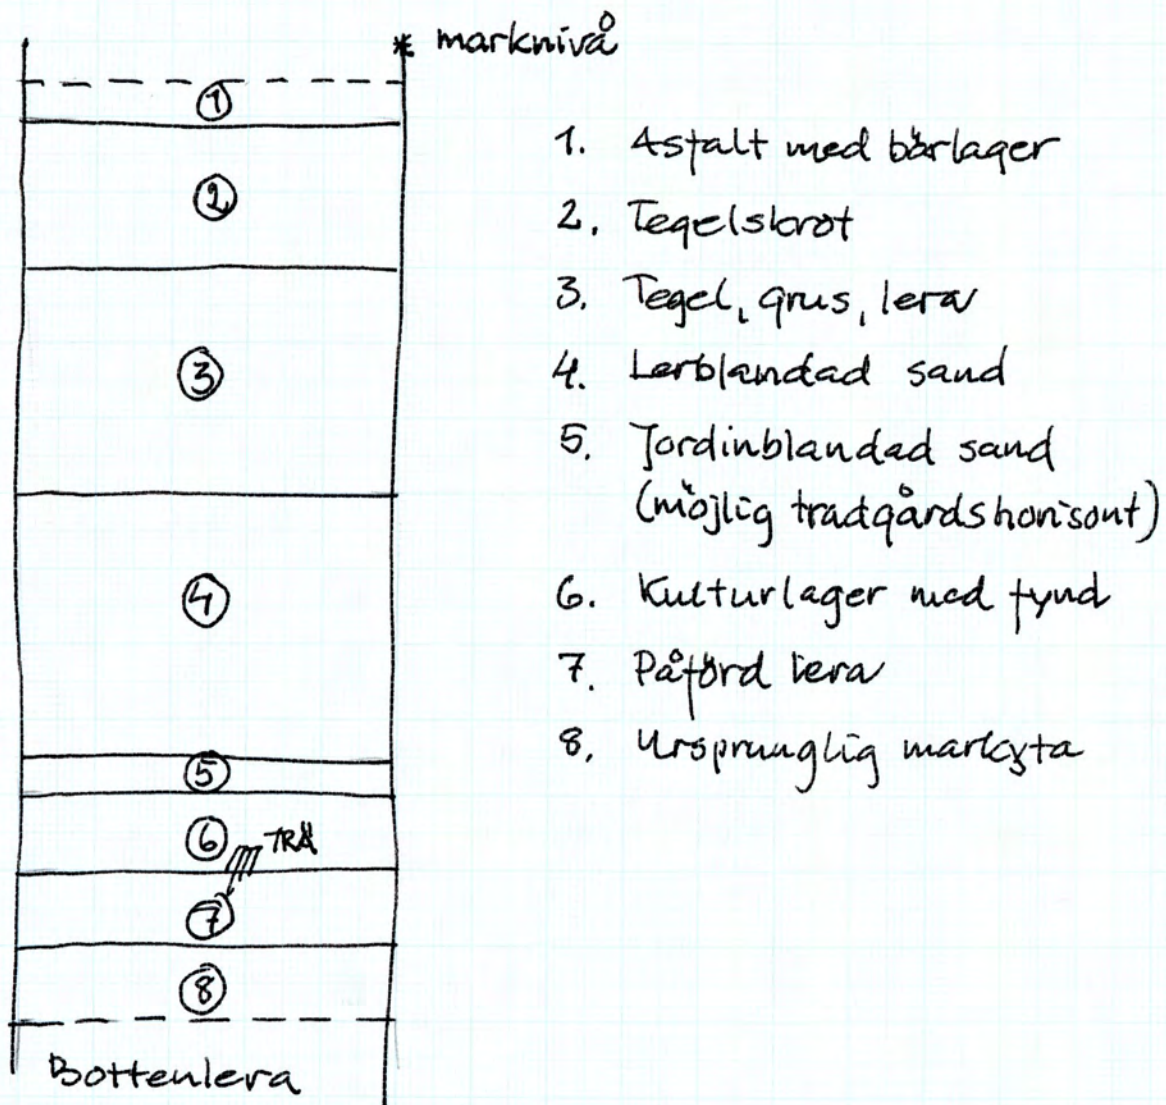 * marknivå
1
2
3
4
5
6
TRÄ
7
8
Bottenlera
1. Asfalt med bärlager
2. Tegelskrot
3. Tegel, grus, lera
4. Lerblandad sand
5. Jordinblandad sand
(möjlig trädgårdshorisont)
6. Kulturlager med fynd
7. Påförd lera
8. Ursprunglig markyta